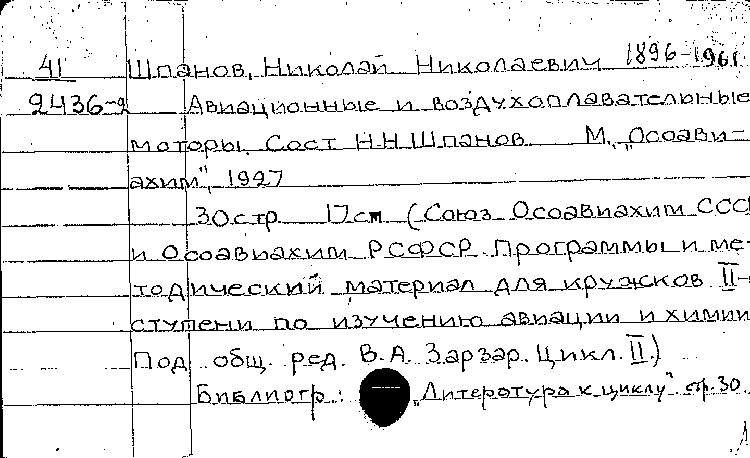 41 Шпанов, Николай Николаевич 1896-1961
2436-2 Авиационные и воздухоплавательные
моторы. Сост Н.Н.Шпанов М., „Осоави-
ахим", 1927
30стр 17см (Союз Осоавиахим СССР
и Осоавиахим РСФСР. Программы и ме-
тодический материал для кружков II-
ступени по изучению авиации и химии
Под общ. ред. В.А. Зарзар. Цикл. II.)
Библиогр: „Литература к циклу" стр.30.